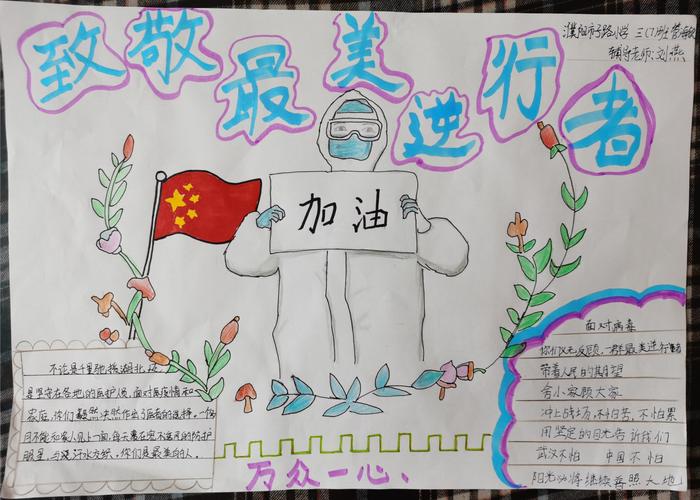 致敬最美逆行者
濮阳市子路小学 三(7)班
辅导老师:刘燕
加油
不论是千里驰援湖北还
是坚守在各地的医护人员,面对居疫情和
家庭,你们毅然决然作出了后者的选择。一个
目不能和家人见上一面,每天裹在密不透风的防护
服里,与汗水交织,你们是最美的人。
面对病毒
你们义无反顾,一群最美逆行者
带着人民的期望
舍小家顾大家
冲上战场,不怕苦,不怕累
用坚定的目光告诉我们
武汉不怕 中国不怕
阳光必将继续普照大地
万众一心、